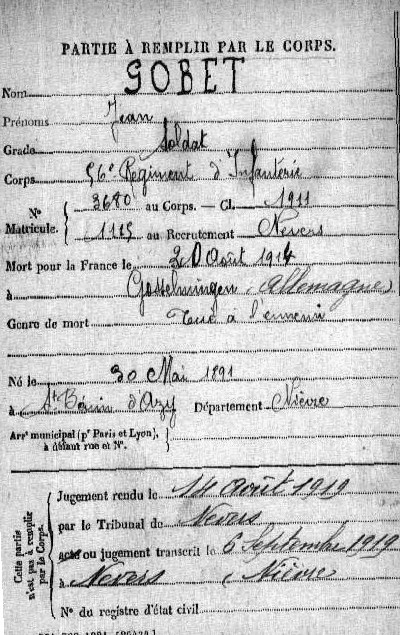 PARTIE À REMPLIR PAR LE CORPS.
Nom GOBET
Prénoms Jean
Grade Soldat
Corps 56e Régiment d'Infanterie
No 3680 au Corps. — Cl. 1911
Matricule. 1125 au Recrutement Nevers
Mort pour la France le 20 Août 1914
à Gosselmingen (Allemagne)
Genre de mort Tué à l'ennemi
Né le 30 Mai 1891
à St Bénin d'Azy Département Nièvre
Arrt municipal (pr Paris et Lyon),
à défaut rue et No.
Cette partie
n'est pas à remplir
par le Corps.
Jugement rendu le 14 Août 1919
par le Tribunal de Nevers
acte ou jugement transcrit le 6 Septembre 1919
à Nevers (Nièvre)
No du registre d'état civil